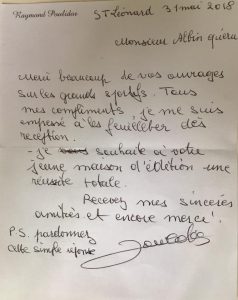 Raymond Poulidor
St Léonard 31 mai 2018
Monsieur Albin Quéru
Merci beaucoup de vos ouvrages
sur les grands sportifs. Tous
mes compliments je me suis
empressé à les feuilleter dès
réception.
- je souhaite à votre
jeune maison d'édition une
réussite totale.
Recevez mes sincères
amitiés et encore merci !
P.S. pardonnez
cette simple réponse